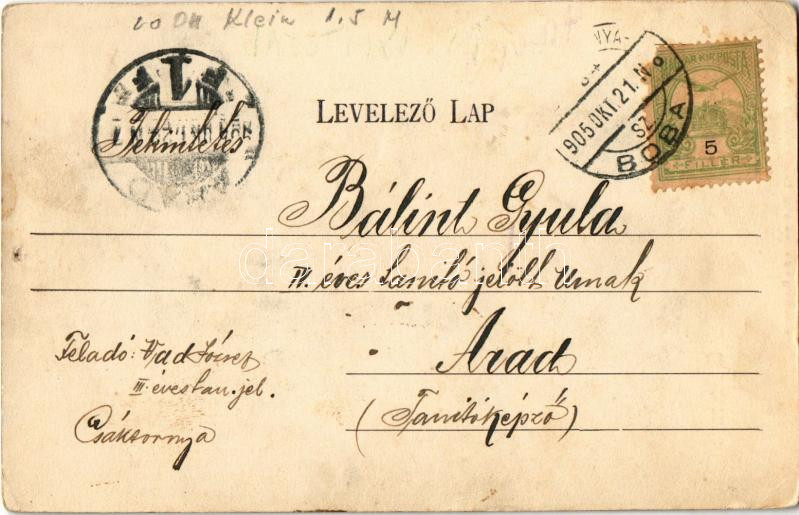 Klein 1.5 M
LEVELEZŐ LAP
NYA-
905 OKT. 21. N
SZ
BOBA
MAGYAR KIR. POSTA
5
FILLÉR
Tekintetes
Bálint Gyula
IV. éves tanító jelölt Urnak
Arad
(Tanítóképző)
Feladó: Vad József
III. éves tan. jel.
Csáktornya
databanth